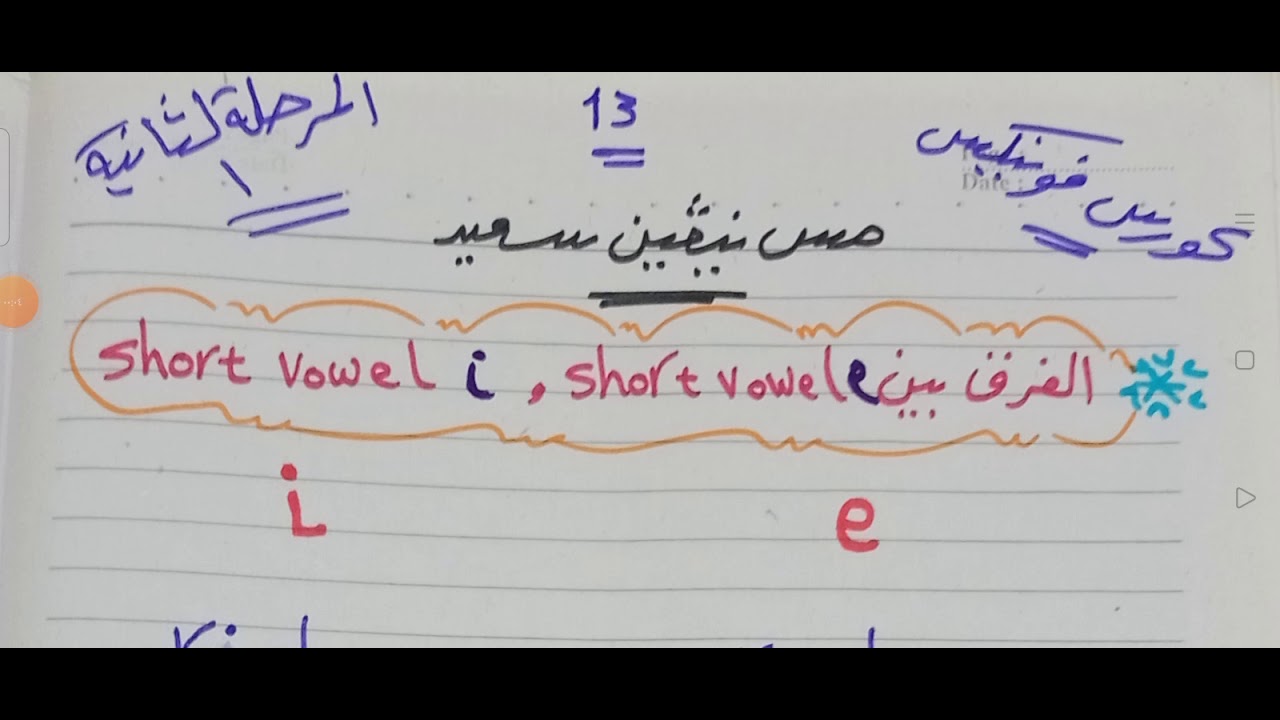 كورس فونيكس
13
المرحلة الثانية
١
مس نيڤين سعيد
الفرق بين short vowel e , short vowel i
i e
Date :